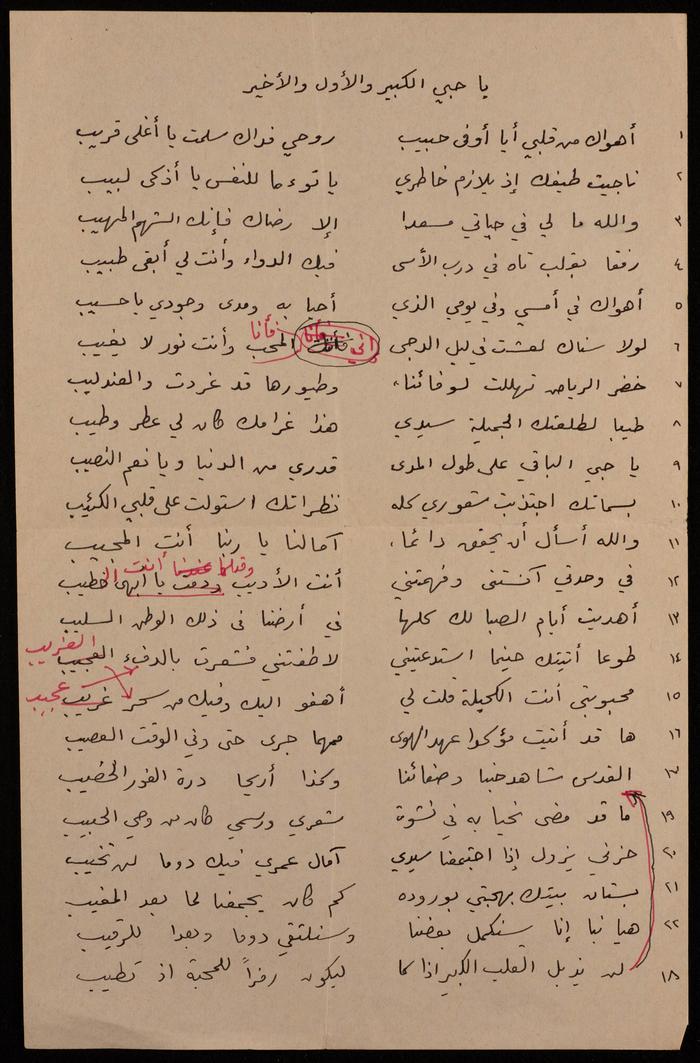 يا حبي الكبير والأول والأخير
١ أهواك من قلبي أيا أوفى حبيب روحي فداك سلمت يا أغلى قريب
٢ ناجيت طيفك إذ يلازم خاطري يا توءما للنفس يا أذكى لبيب
٣ والله ما لي في حياتي مسعدا إلا رضاك فإنك الشهم المهيب
٤ رفقا بقلب تاه في درب الأسى فبك الدواء وأنت لي أبقى طبيب
٥ أهواك في أمسي وفي يومي الذي أحيا به ومدى وجودي يا حسيب
٦ لولا سناك لعشت في ليل الدجى إني فأنا المحب وأنت نور لا يغيب
فأنا
٧ خضر الرياض تهللت لوفائنا، وطيورها قد غردت والعندليب
٨ طيبا لطلعتك الجميلة سيدي هذا غرامك كان لي عطر وطيب
٩ يا حبي الباقي على طول المدى قدري من الدنيا ويا نعم النصيب
١٠ بسماتك اجتذبت شعوري كله نظراتك استولت على قلبي الكئيب
١١ والله أسأل أن يحقق دائما، آمالنا يا ربنا أنت المجيب
١٢ في وحدتي آنستني وفهمتني أنت الأديب يا أبهى الخطيب
وقلنا عندنا أنت
١٣ أهديت أيام الصبا لك كلها في أرضنا في ذلك الوطن السليب
١٤ طوعا أتيتك حينما استدعيتني لاطفتني فشعرت بالدفء العجيب
الغريب
١٥ محبوبتي أنت الكحيلة قلت لي أهفو اليك وفيك من سحر غريب
عجيب
١٦ ها قد أتيت مؤكدا عهد الهوى مهما جرى حتى وفي الوقت العصيب
١٧ القدس شاهد حبنا وصفائنا وكذا أريحا درة الغور الخصيب
١٩ ما قد مضى نحيا به في نشوة شعري ورسمي كان من وحي الحبيب
٢٠ حزني يزول إذا اجتمعنا سيدي آمال عمري فيك دوما لن تخيب
٢١ بستان بيتك بهجتي بوروده كم كان يجمعنا لما بعد المغيب
٢٢ هيا بنا إنا سنكمل بعضنا وسنلتقي دوما وبعدا للرقيب
١٨ لن يذبل القلب الكبير اذا كما ليكون رمزاً للمحبة اذ تطيب